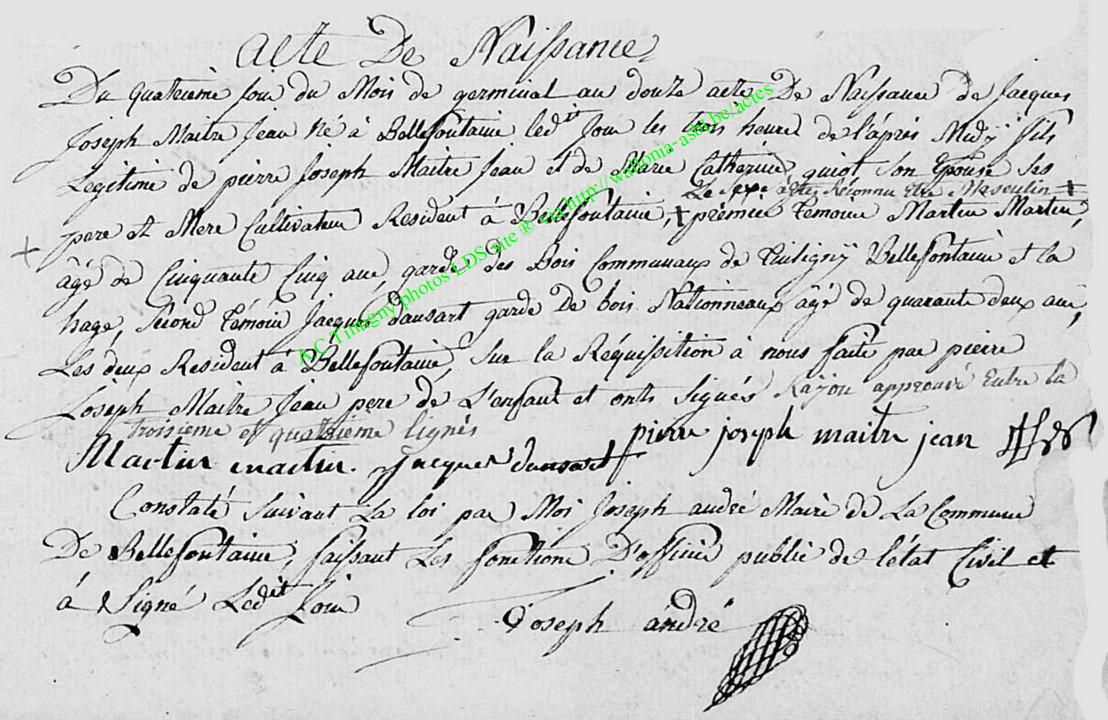 acte De Naissance
Du quatrieme jour du Mois de germinal an douze acte De Naissance de Jacques
Joseph Maitre Jean Né à Bellefontaine ledit Jour les trois heures de l'après Midÿ fils
Legitime de pierre Joseph Maitre Jean et de Marie Catherine quiot Son Epouse ses
Le sexe a été reconnu Etre Masculin ‡
pere et Mere Cultivateur Resident à Bellefontaine, ‡ premier temoin Martin Martin,
âgé de Cinquante Cinq ans, garde des Bois Communaux de Tintigny Bellefontaine et la
hage, second temoin Jacques dausart garde De bois Nationneaux âgé de quarante deux ans,
Les deux Resident à Bellefontaine, sur la Réquisition à nous faite par pierre
Joseph Maitre Jean pere de L'enfant et onts signés Rajou approuvé Entre la
troisieme et quatrieme lignes
pierre joseph maitre jean
Martin martin. Jacques dausart
Constaté suivant La loi par Moi Joseph andré Maire de La Commune
De Bellefontaine, faissant Les fonctions D'officier public de l'état Civil et
à Signé Ledit Jour
Joseph andré
AC Tintigny photos LDS site ® sur http://wallonia-asbl.be/actes